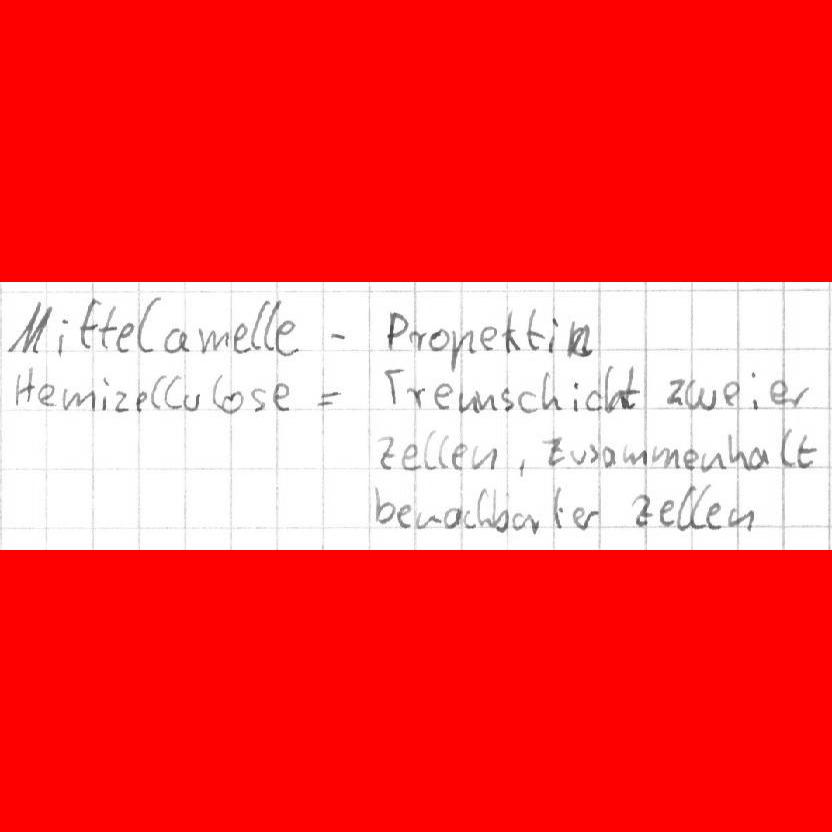 Mittelamelle - Propektin
Hemizellulose = Trennschicht zweier
Zellen, Zusammenhalt
benachbarter Zellen